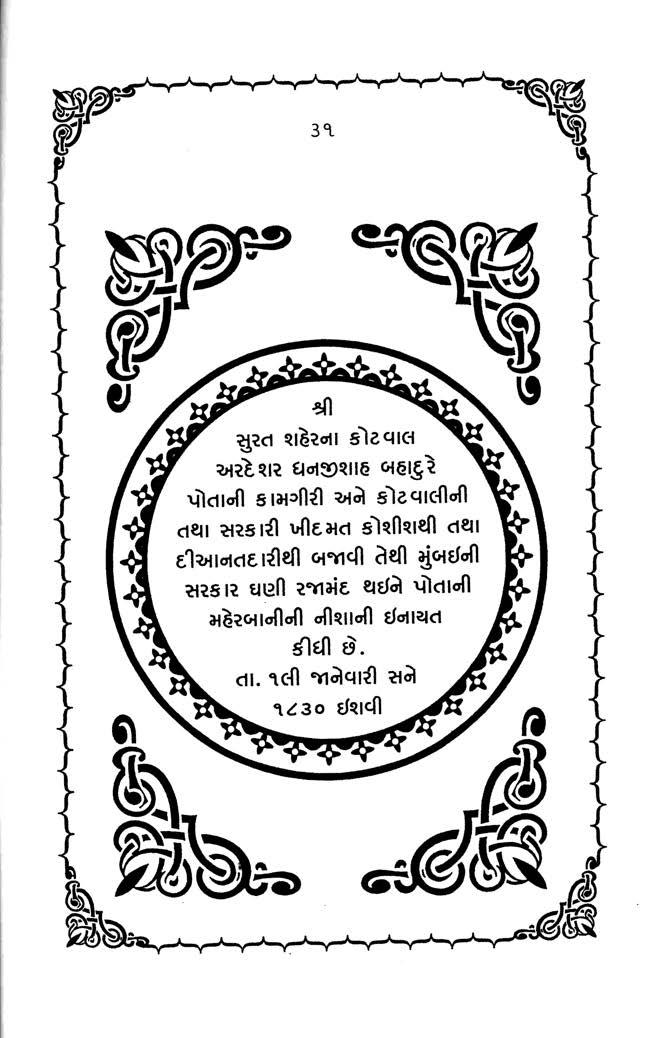 ૩૧
શ્રી
સુરત શહેરના કોટવાલ
અરદેશર ધનજીશાહ બહાદુરે
પોતાની કામગીરી અને કોટવાલીની
તથા સરકારી ખીદમત કોશીશથી તથા
દીઆનતદારીથી બજાવી તેથી મુંબઇની
સરકાર ઘણી રજામંદ થઇને પોતાની
મહેરબાનીની નીશાની ઇનાયત
કીધી છે.
તા. ૧લી જાનેવારી સને
૧૮૩૦ ઇશવી